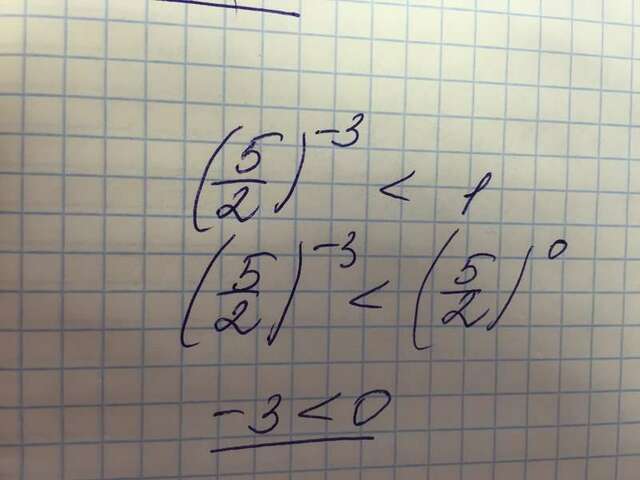 (5/2)⁻³ < 1
(5/2)⁻³ < (5/2)⁰
-3 < 0